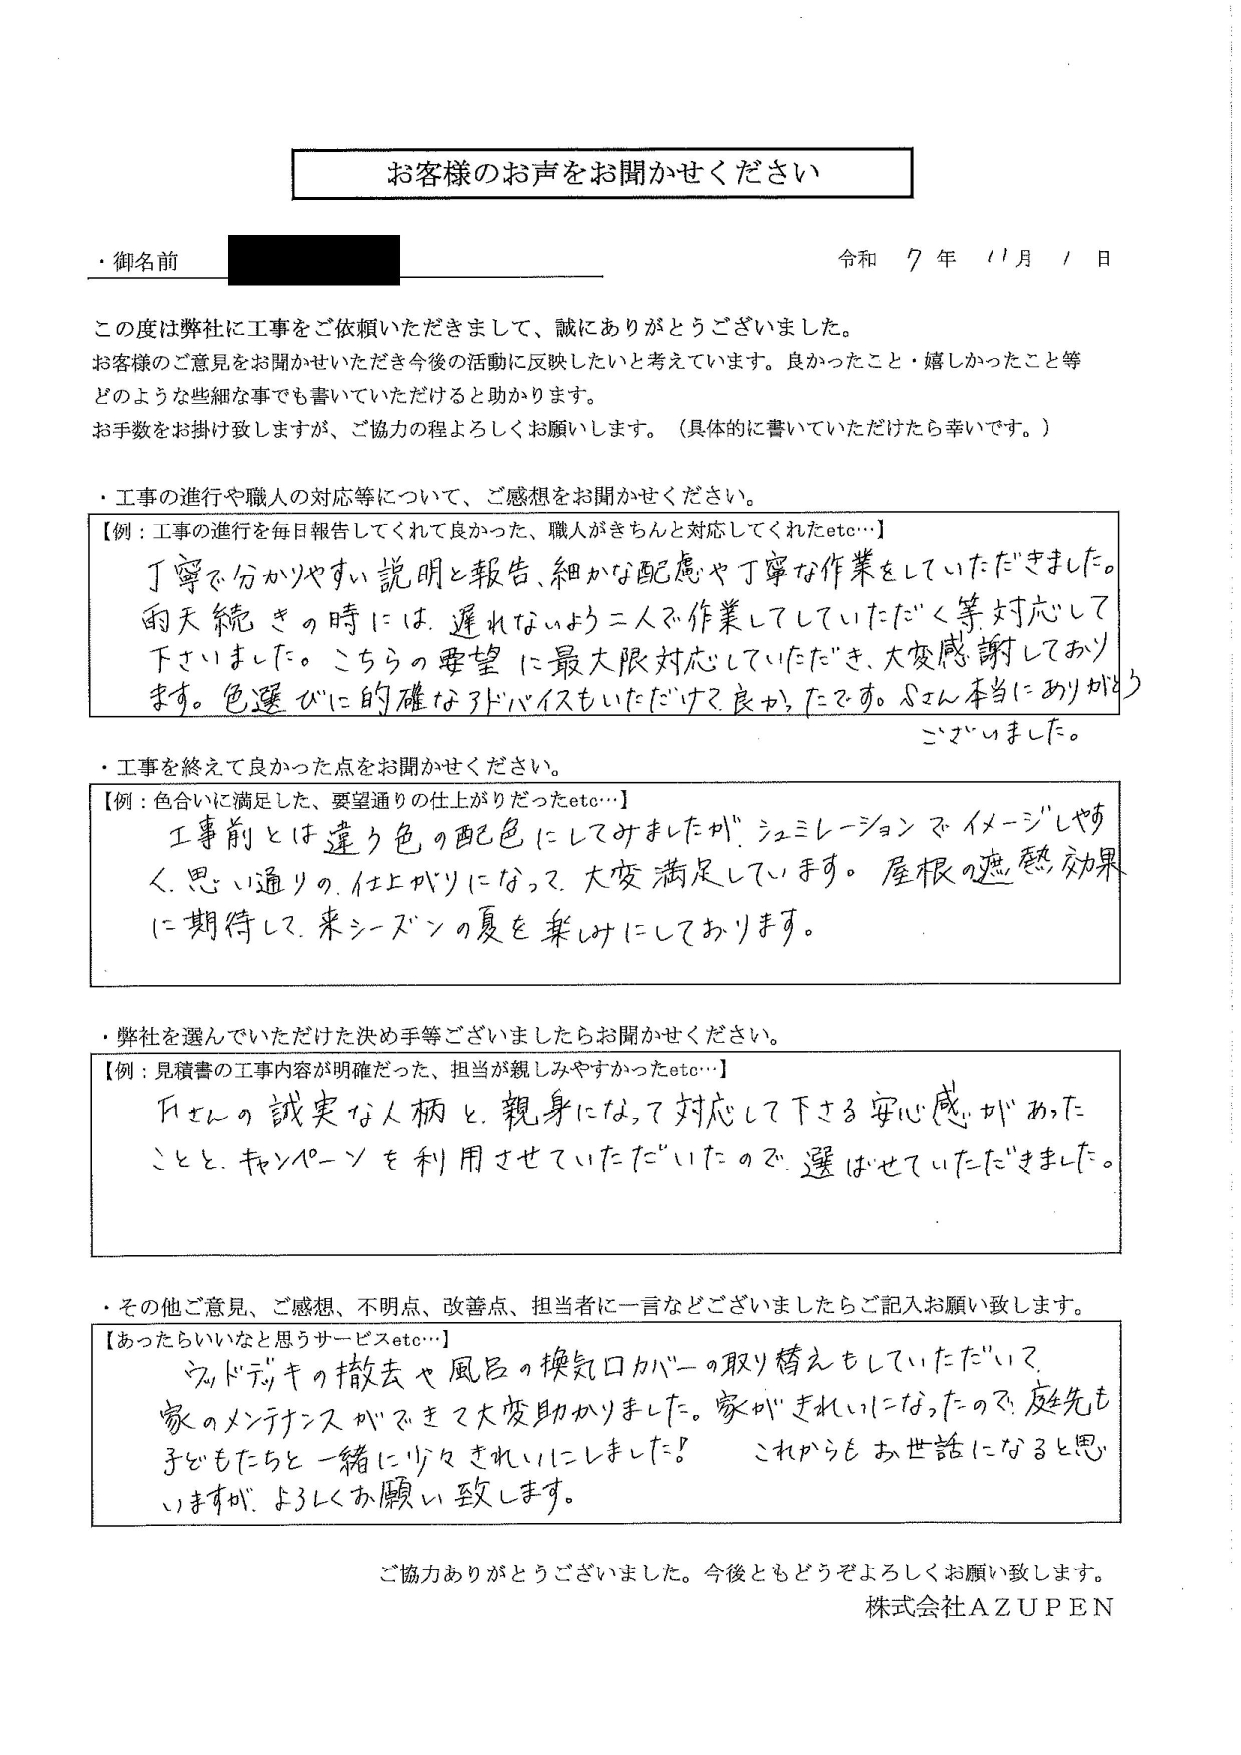 お客様のお声をお聞かせください
・御名前
令和 7 年 11 月 1 日
この度は弊社に工事をご依頼いただきまして、誠にありがとうございました。
お客様のご意見をお聞かせいただき今後の活動に反映したいと考えています。良かったこと・嬉しかったこと等
どのような些細な事でも書いていただけると助かります。
お手数をお掛け致しますが、ご協力の程よろしくお願いします。（具体的に書いていただけたら幸いです。）
・工事の進行や職人の対応等について、ご感想をお聞かせください。
【例：工事の進行を毎日報告してくれて良かった、職人がきちんと対応してくれたetc…】
丁寧で分かりやすい説明と報告、細かな配慮や丁寧な作業をしていただきました。
雨天続きの時には、遅れないよう二人で作業してしていただく等、対応して
下さいました。こちらの要望に最大限対応していただき、大変感謝しており
ます。色選びに的確なアドバイスもいただけて良かったです。Sさん本当にありがとう
ございました。
・工事を終えて良かった点をお聞かせください。
【例：色合いに満足した、要望通りの仕上がりだったetc…】
工事前とは違う色の配色にしてみましたが、シュミレーションでイメージしやす
く、思い通りの仕上がりになって、大変満足しています。屋根の遮熱効果
に期待して、来シーズンの夏を楽しみにしております。
・弊社を選んでいただけた決め手等ございましたらお聞かせください。
【例：見積書の工事内容が明確だった、担当が親しみやすかったetc…】
さんの誠実な人柄と、親身になって対応して下さる安心感があった
ことと、キャンペーンを利用させていただいたので、選ばせていただきました。
・その他ご意見、ご感想、不明点、改善点、担当者に一言などございましたらご記入お願い致します。
【あったらいいなと思うサービスetc…】
ウッドデッキの撤去や風呂の換気口カバーの取り替えもしていただいて、
家のメンテナンスができて大変助かりました。家がきれいになったので、庭先も
子どもたちと一緒に少々きれいにしました！ これからもお世話になると思
いますが、よろしくお願い致します。
ご協力ありがとうございました。今後ともどうぞよろしくお願い致します。
株式会社ＡＺＵＰＥＮ